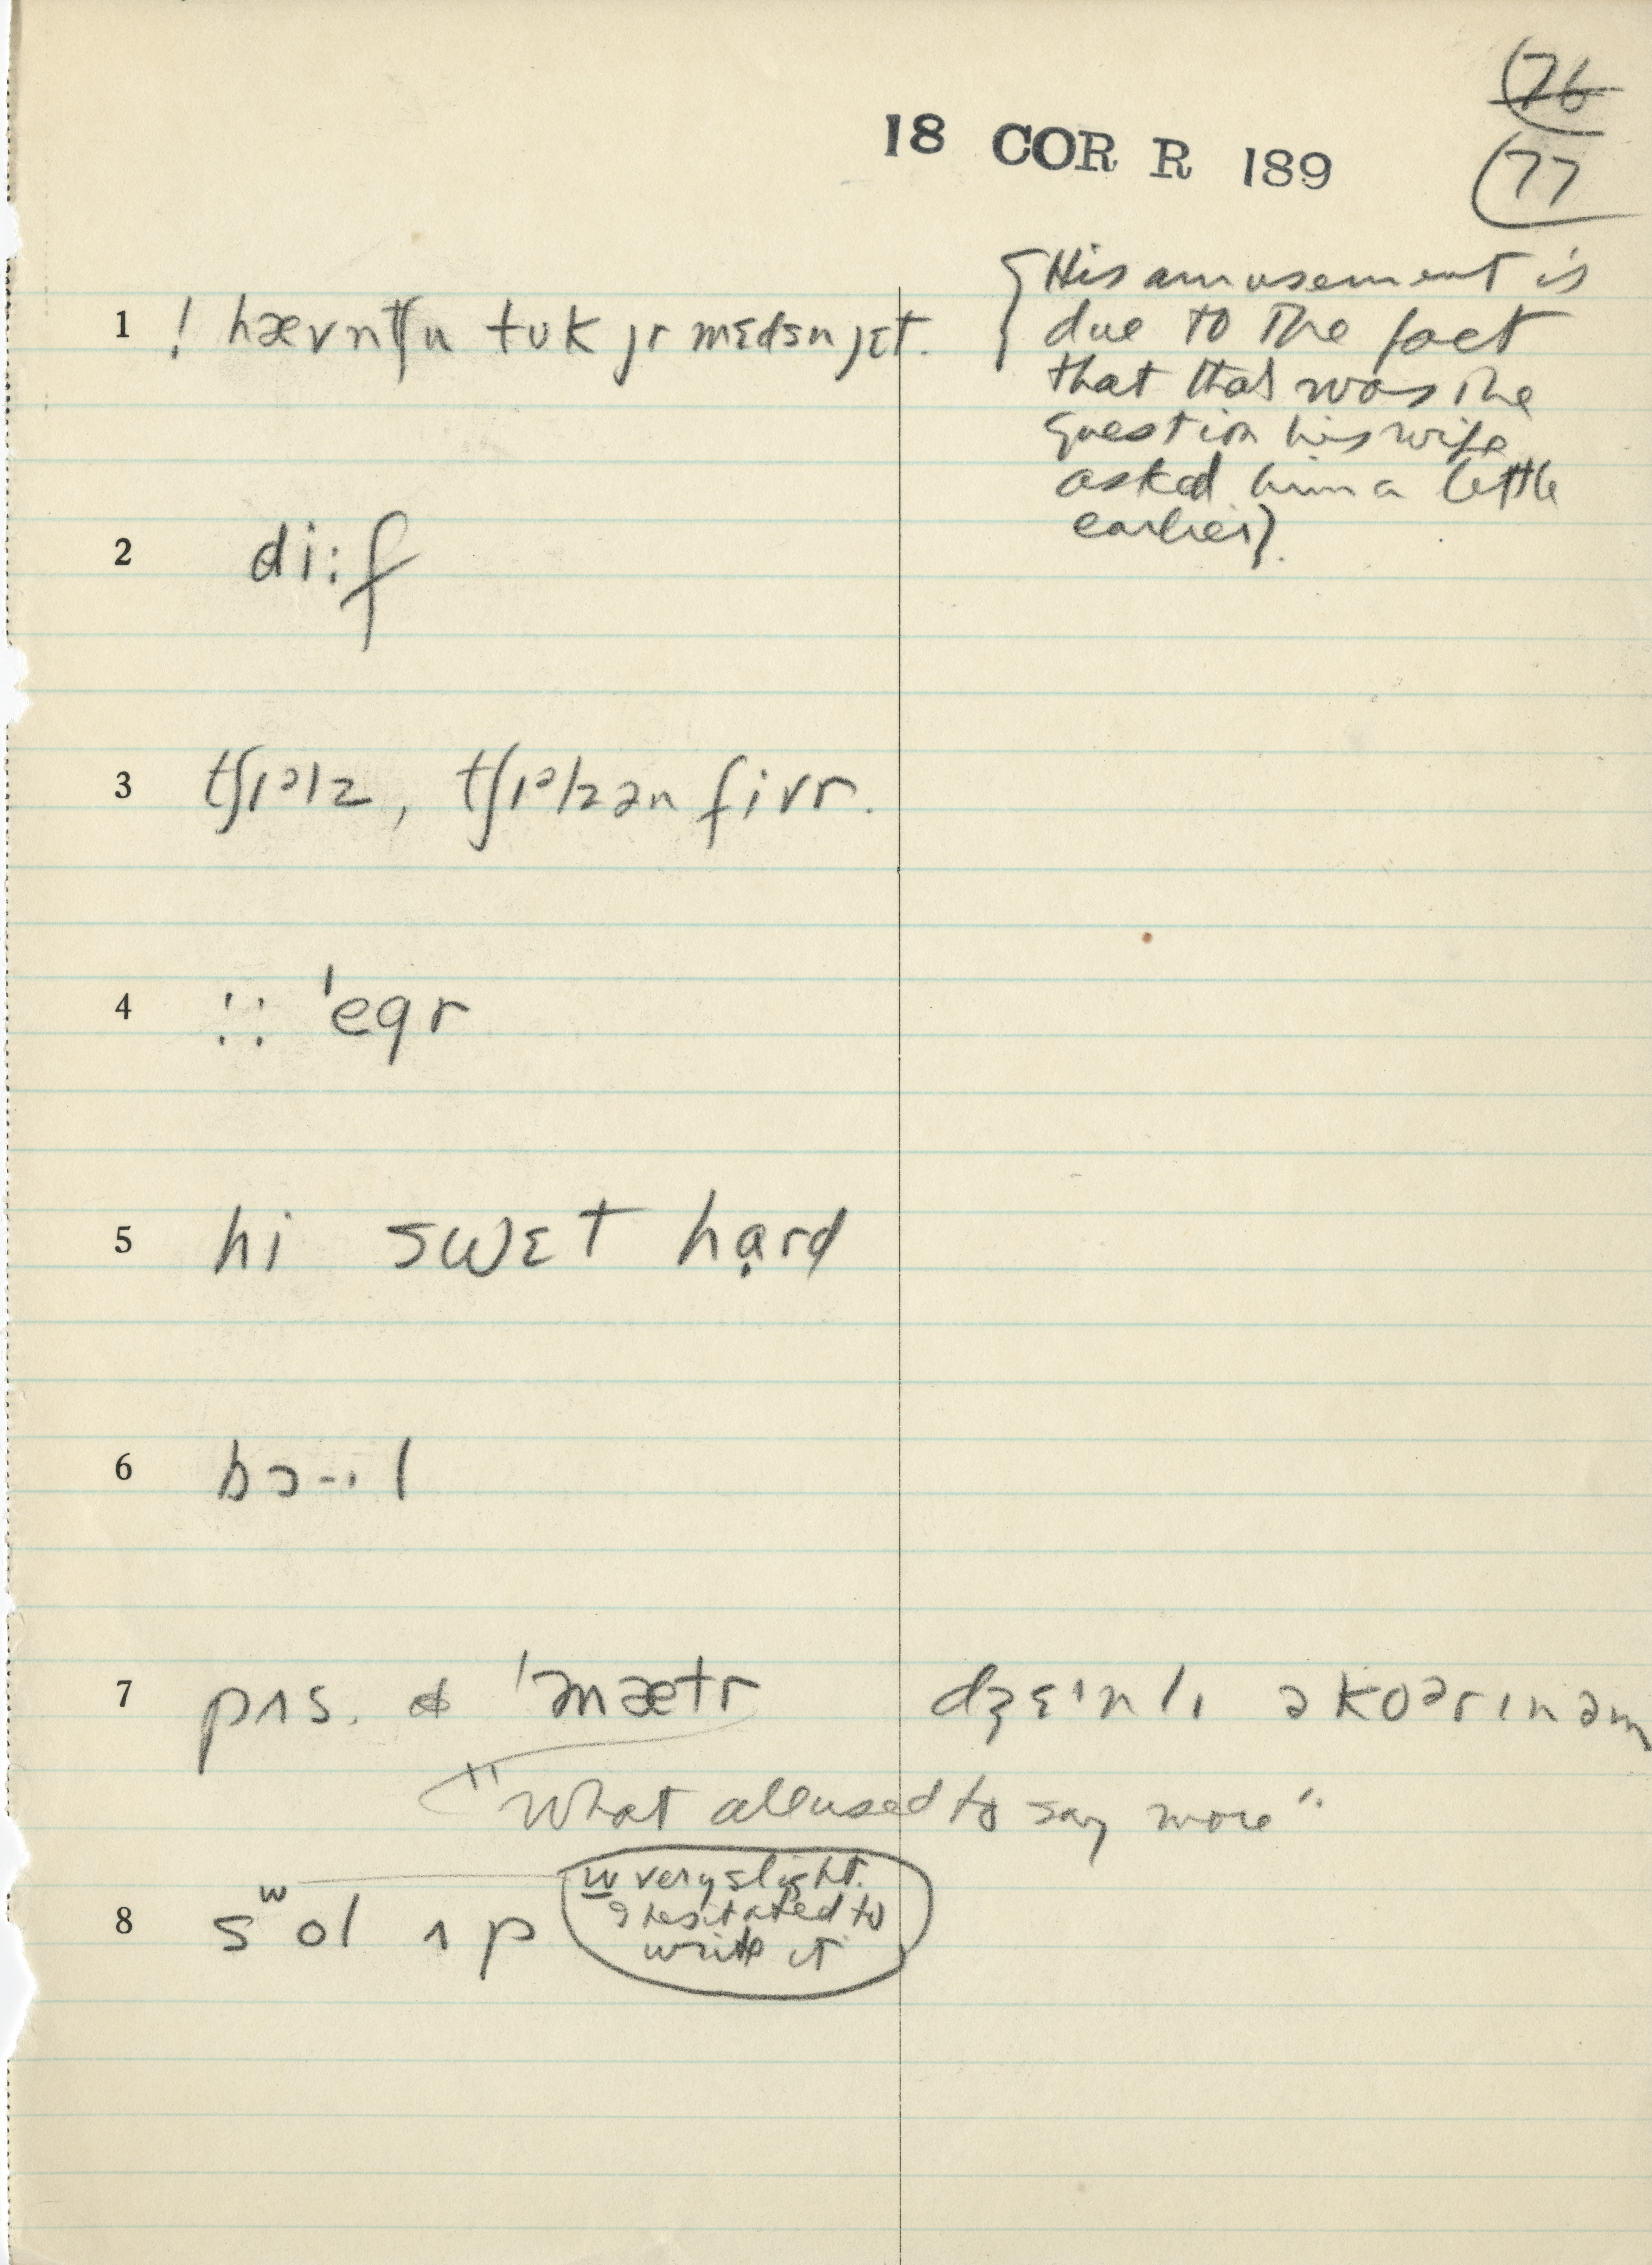 76
18 COR R 189
77
{His amusement is
due to the fact
that that was the
question his wife
asked him a little
earlier}.
1 ! hævntʃu tʊk jr mɛdsn jɛt.
2 di:f
3 tʃɪᵊlz, tʃɪᵊlzən fivr.
4 !: 'egr
5 hi swɛt hạrd
6 bɔ-ɪl
7 pʌs. & 'əmætr dʒɛᶦnlɪ əkoᵊrɪnəm
"What all used to say more".
w very slight.
I hesitated to
write it
8 sʷol ʌp